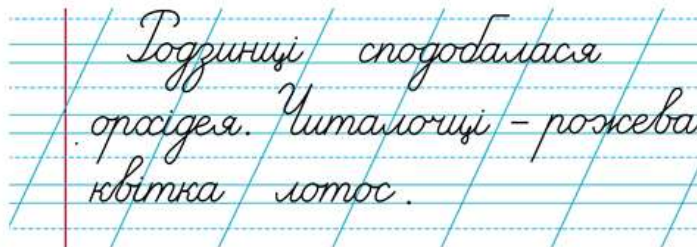 Родзинці сподобалася
орхідея. Читалочці – рожева
квітка лотос.